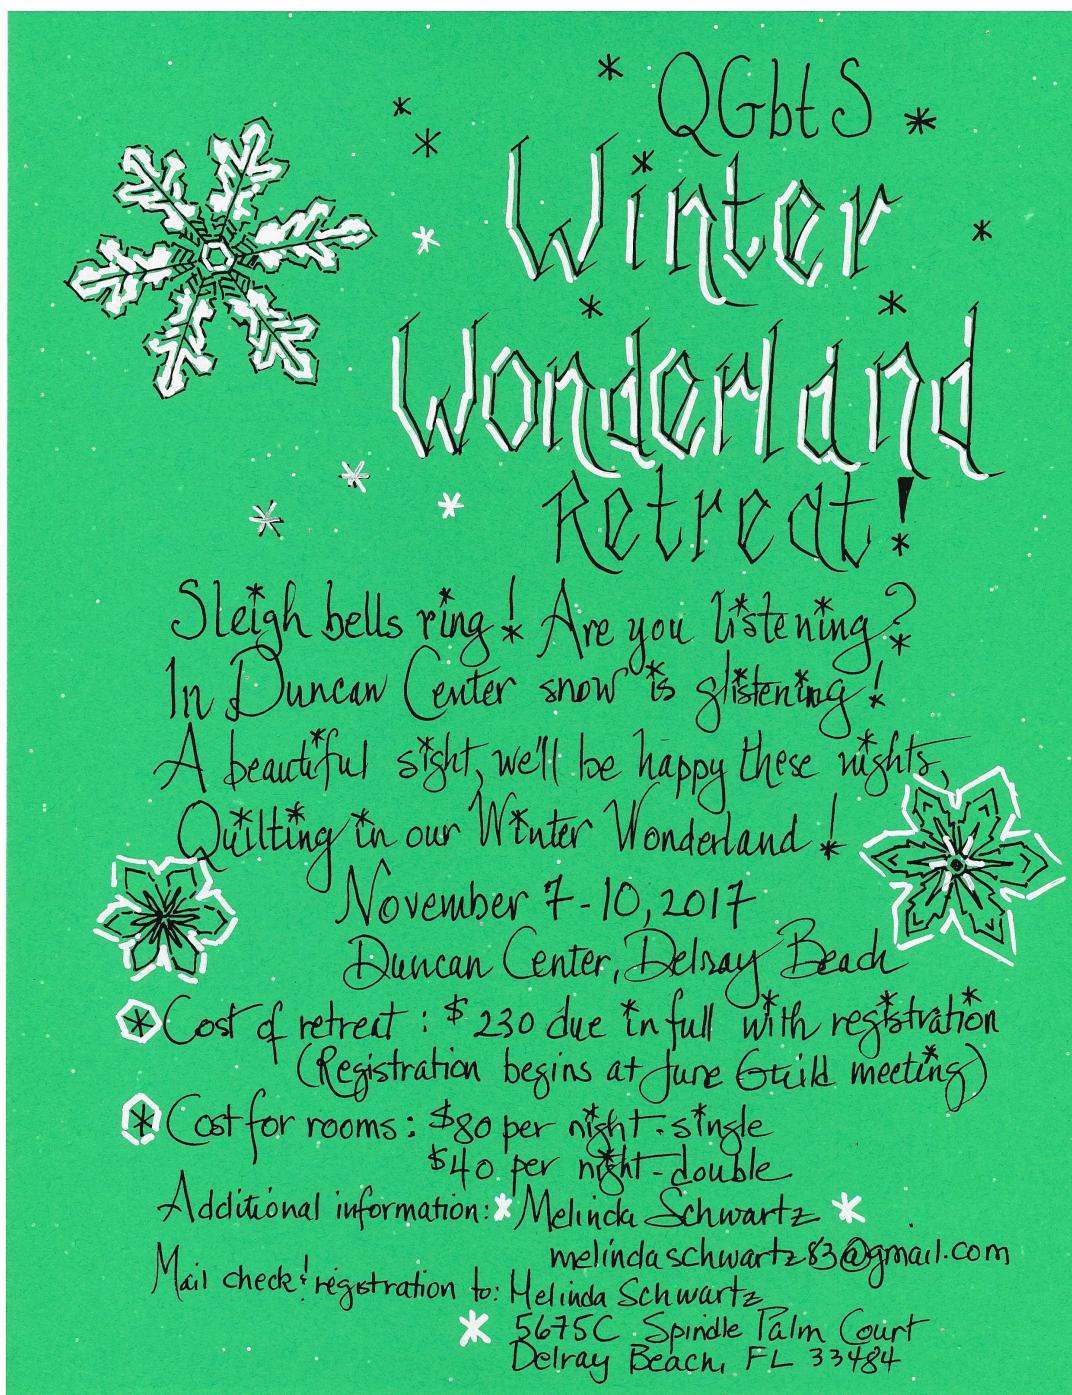 QGbtS
Winter
Wonderland
Retreat!
Sleigh bells ring! Are you listening?
In Duncan Center snow is glistening!
A beautiful sight, we'll be happy these nights,
Quilting in our Winter Wonderland!
November 7-10, 2017
Duncan Center, Delray Beach
Cost of retreat: $230 due in full with registration
(Registration begins at June Guild meeting)
Cost for rooms: $80 per night-single
$40 per night-double
Additional information: Melinda Schwartz
melindaschwartz83@gmail.com
Mail check & registration to: Melinda Schwartz
5675C Spindle Palm Court
Delray Beach, FL 33484